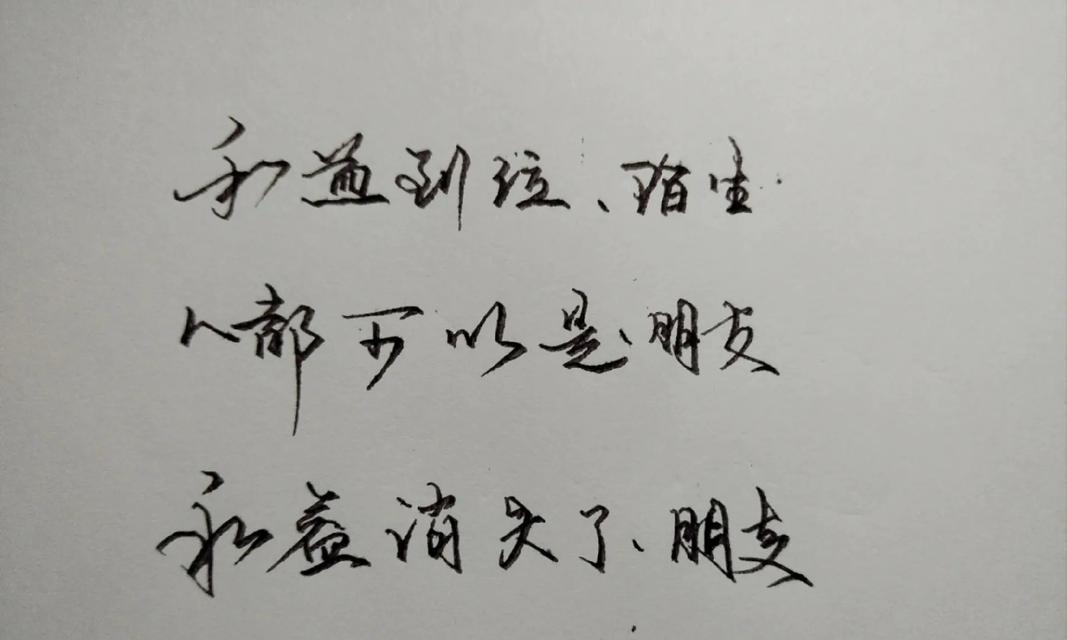 利益到位、陌生
人都可以是朋友
利益消失了、朋友